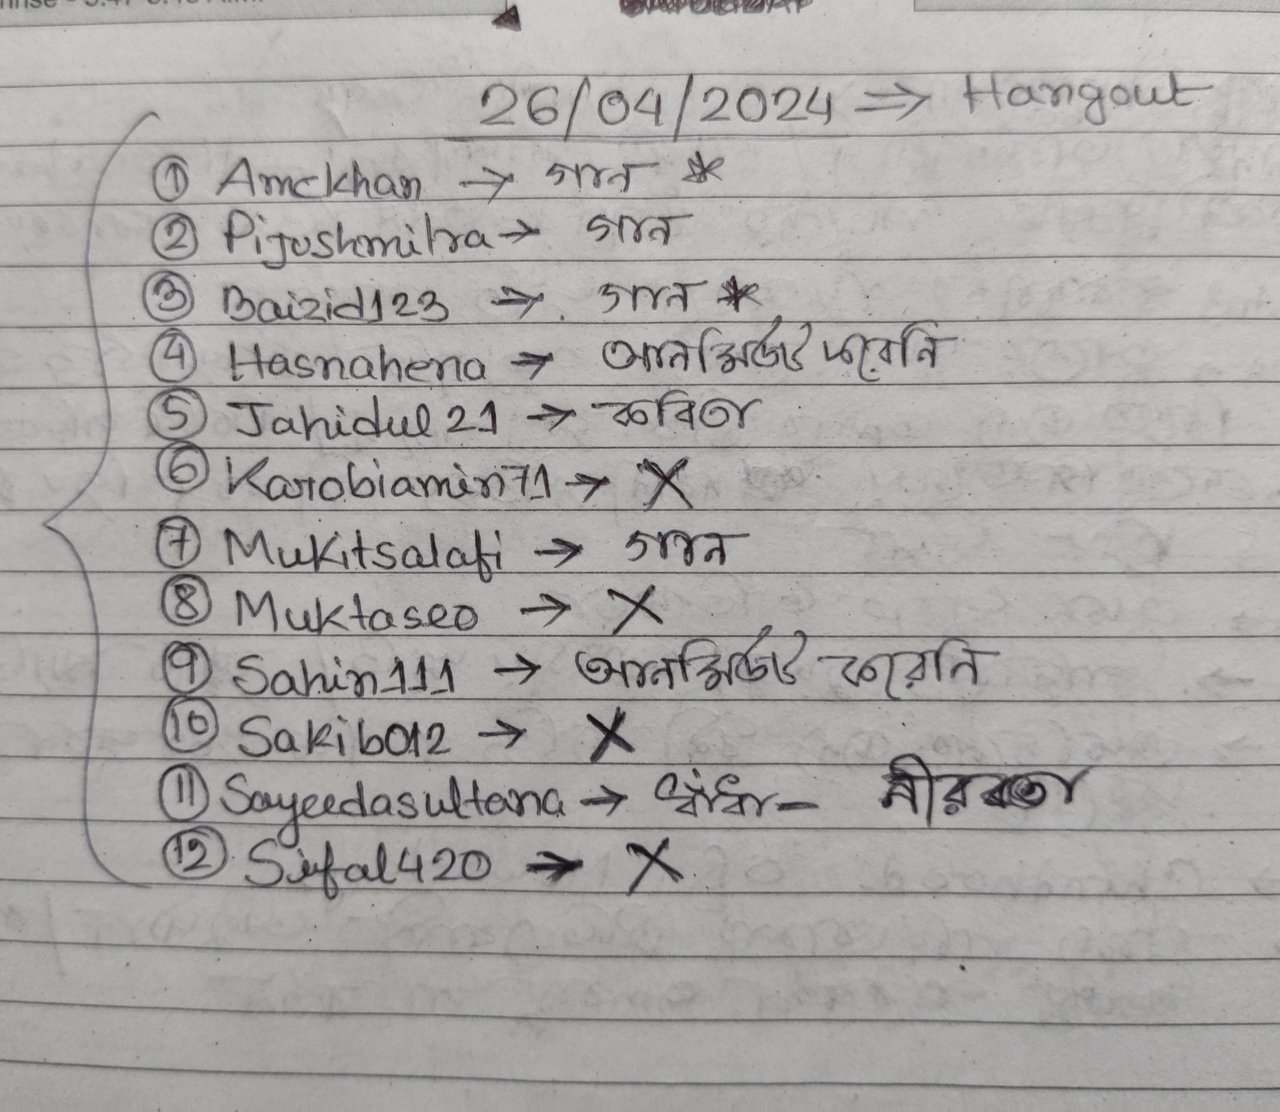 26/04/2024 ⇒ Hangout
① Amckhan → গান *
② Pijushmitra → গান
③ Baizid123 → গান *
④ Hasnahena → আনমিউট করেনি
⑤ Jahidul21 → কবিতা
⑥ Karobiamin71 → X
⑦ Mukitsalafi → গান
⑧ Muktaseo → X
⑨ Sahin111 → আনমিউট করেনি
⑩ Sakib012 → X
⑪ Sayeedasultana → ধাঁধা- নীরবতা
⑫ Sifal420 → X